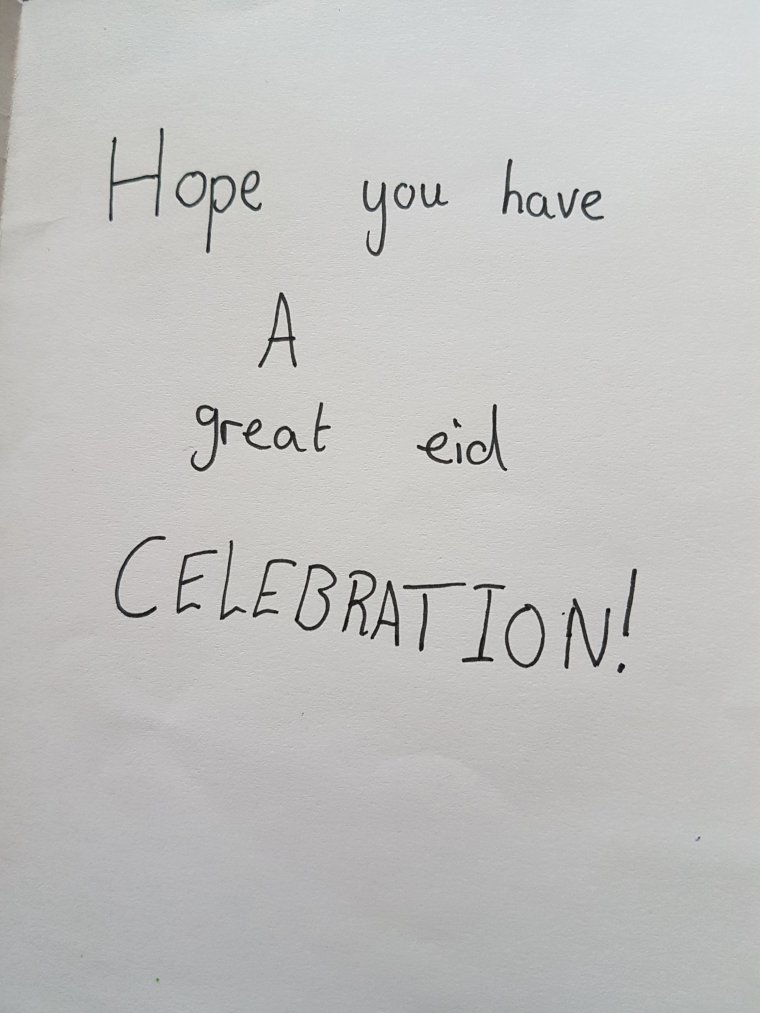 Hope you have
A
great eid
CELEBRATION!